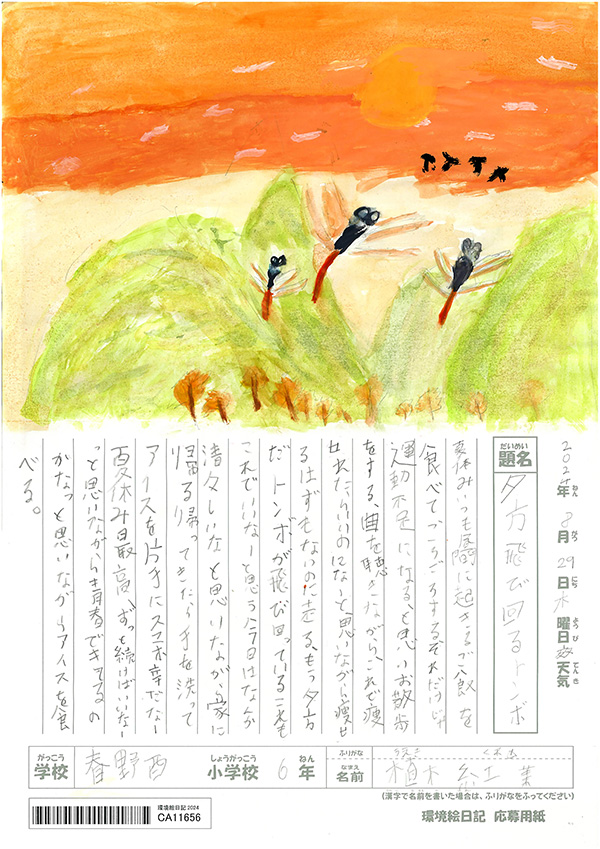 2024年 8月 29日 木曜日 天気
ねん がつ にち ようび てんき
だいめい
題名 夕方飛び回るトンボ
夏休みいつも昼間に起きるご飯を
食べてごろごろする。それだけじゃ
運動不足になる、と思いお散歩
をする、曲を聴きながら、これで痩
せれたらいいのになーと思いながら痩せ
るはずもないのに走る、もう夕方
だトンボが飛び回っているこれも
これでいいなーと思う今日はなんか
清々しいなと思いながら家に
帰る帰ってきたら手を洗って
アイスを片手にスマホ幸だなー
夏休み最高、ずっと続けばいいなー
っと思いながら青春できてるの
かなっと思いながらアイスを食
べる。
がっこう しょうがっこう ねん ふりがな くれは
学校 春野西 小学校 6年 なまえ 名前 植木 紅葉
(漢字で名前を書いた場合は、ふりがなをふってください)
環境絵日記 2024
CA11656
環境絵日記 応募用紙